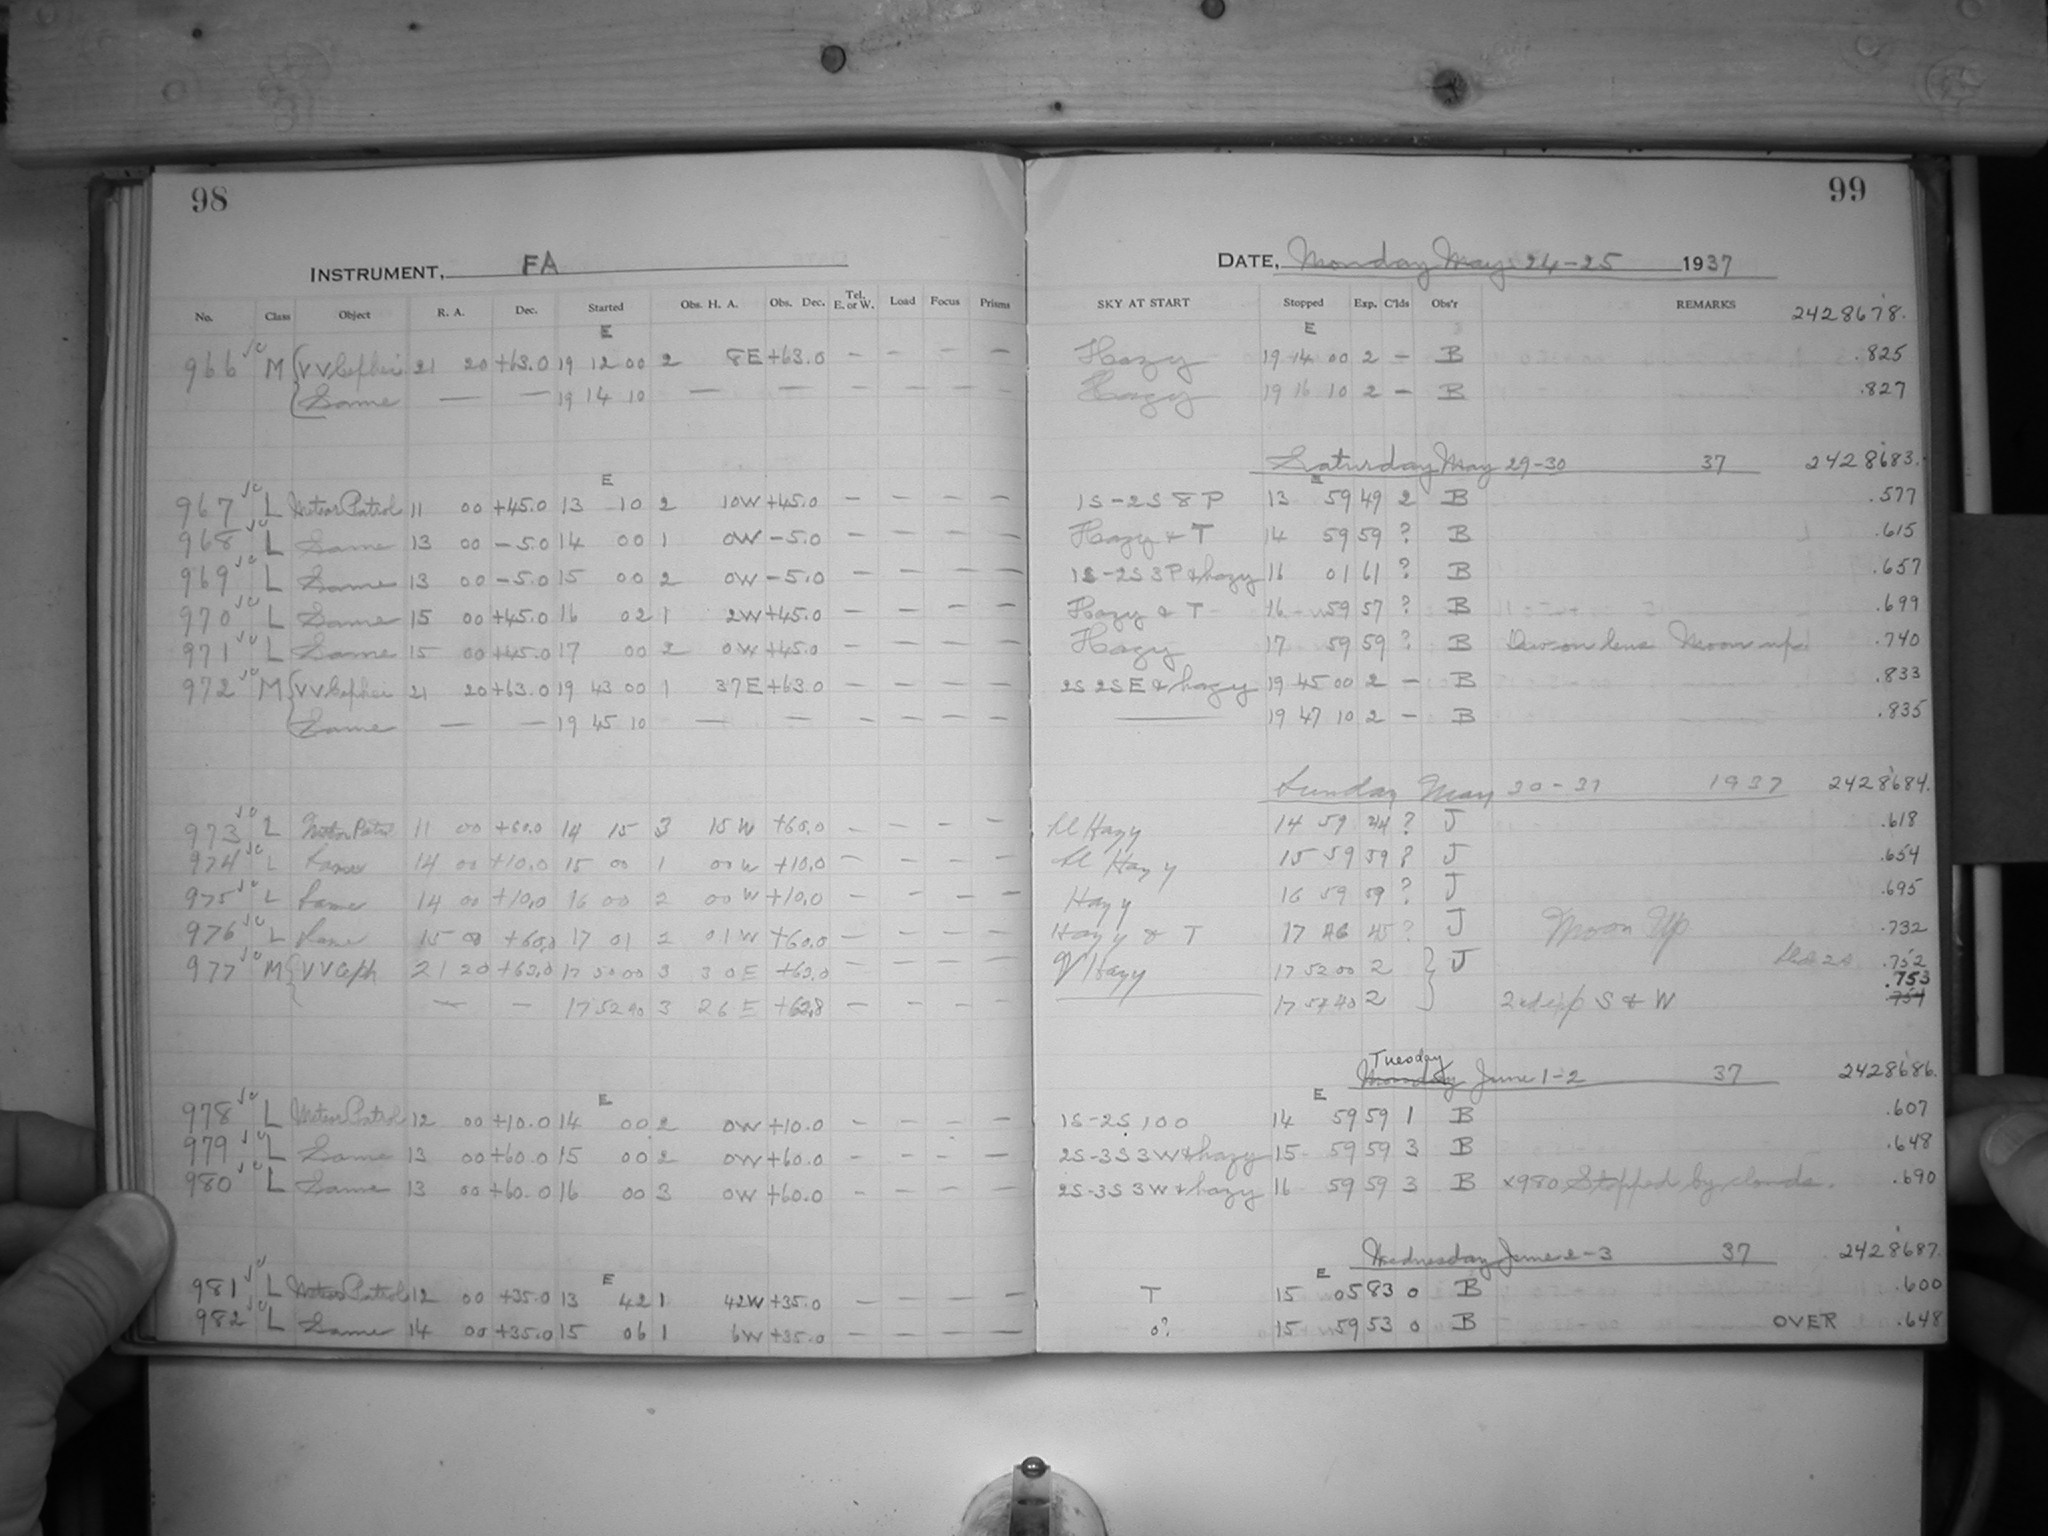 98
INSTRUMENT, FA
No. Class Object R. A. Dec. Started Obs. H. A. Obs. Dec. Tel. E. or W. Load Focus Prisms
E
966 M VV Cephei 21 20 +63.0 19 12 00 2 8E +63.0 - - - -
Same — — 19 14 10 — — - - - -
E
967 L Meteor Patrol 11 00 +45.0 13 10 2 10W +45.0 - - - -
968 L Same 13 00 -5.0 14 00 1 0W -5.0 - - - -
969 L Same 13 00 -5.0 15 00 2 0W -5.0 - - - -
970 L Same 15 00 +45.0 16 02 1 2W +45.0 - - - -
971 L Same 15 00 +45.0 17 00 2 0W +45.0 - - - -
972 M VV Cephei 21 20 +63.0 19 43 00 1 37E +63.0 - - - -
Same — — 19 45 10 — — - - - -
973 L Meteor Patrol 11 00 +60.0 14 15 3 15W +60.0 - - - -
974 L Same 14 00 +10.0 15 00 1 00W +10.0 - - - -
975 L Same 14 00 +10.0 16 00 2 00W +10.0 - - - -
976 L Same 15 00 +60.0 17 01 2 01W +60.0 - - - -
977 M VV Ceph 21 20 +63.0 17 50 00 3 30E +63.0 - - - -
— — 17 52 40 3 26E +62.8 - - - -
E
978 L Meteor Patrol 12 00 +10.0 14 00 2 0W +10.0 - - - -
979 L Same 13 00 +60.0 15 00 2 0W +60.0 - - - -
980 L Same 13 00 +60.0 16 00 3 0W +60.0 - - - -
E
981 L Meteor Patrol 12 00 +35.0 13 42 1 42W +35.0 - - - -
982 L Same 14 00 +35.0 15 06 1 6W +35.0 - - - -
99
DATE, Monday May 24-25 1937
SKY AT START Stopped Exp. C'lds Obs'r REMARKS 2428678.
E
Hazy 19 14 00 2 - B .825
Hazy 19 16 10 2 - B .827
Saturday May 29-30 37 2428683.
E
1S-2S 8P 13 59 49 2 B .577
Hazy & T 14 59 59 ? B .615
1S-2S 3P & hazy 16 01 61 ? B .657
Hazy & T 16 59 57 ? B .699
Hazy 17 59 59 ? B Dew on lens Moon up. .740
2S 2S E & hazy 19 45 00 2 - B .833
— 19 47 10 2 - B .835
Sunday May 30-31 1937 2428684.
Hazy 14 59 44 ? J .618
Hazy 15 59 59 ? J .654
Hazy 16 59 59 ? J .695
Hazy & T 17 46 45 ? J Moon Up .732
V Hazy 17 52 00 2 J .752
.753
— 17 54 40 2 2nd exp S & W .754
Tuesday
Monday June 1-2 37 2428686.
E
1S-2S, 100 14 59 59 1 B .607
2S-3S 3W & hazy 15 59 59 3 B .648
2S-3S 3W & hazy 16 59 59 3 B x980 Stopped by clouds. .690
Wednesday June 2-3 37 2428687.
E
T 15 05 83 0 B .600
0? 15 59 53 0 B OVER .648